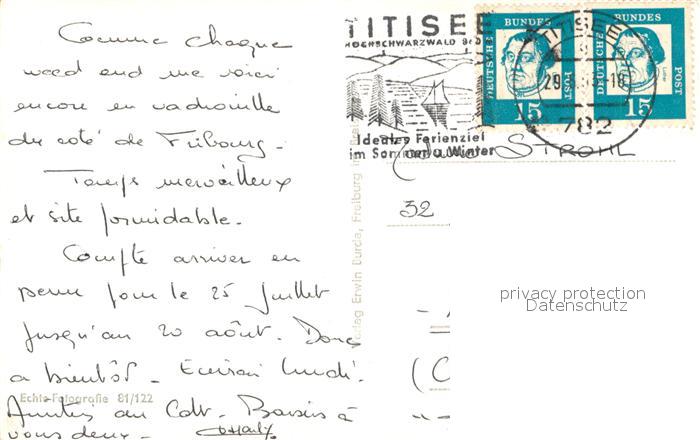 Comme chaque
week end me voici
encore en vadrouille
du coté de Fribourg -
Temps merveilleux
et site formidable.
Compte arriver en
perm pour le 25 Juillet
Jusqu'au 20 août. Donc
a bientôt - Ecrirai lundi.
Amitiés au Baisers à
vous deux -
Echte Fotografie 81/122
Verlag Erwin Burda, Freiburg im
TITISEE
HOCHSCHWARZWALD
Ideales Ferienziel
im Sommer u. Winter
DEUTSCHE BUNDES POST
15
DEUTSCHE BUNDES POST
15
TITISEE
29
-18
782
STROHL
32
privacy protection
Datenschutz